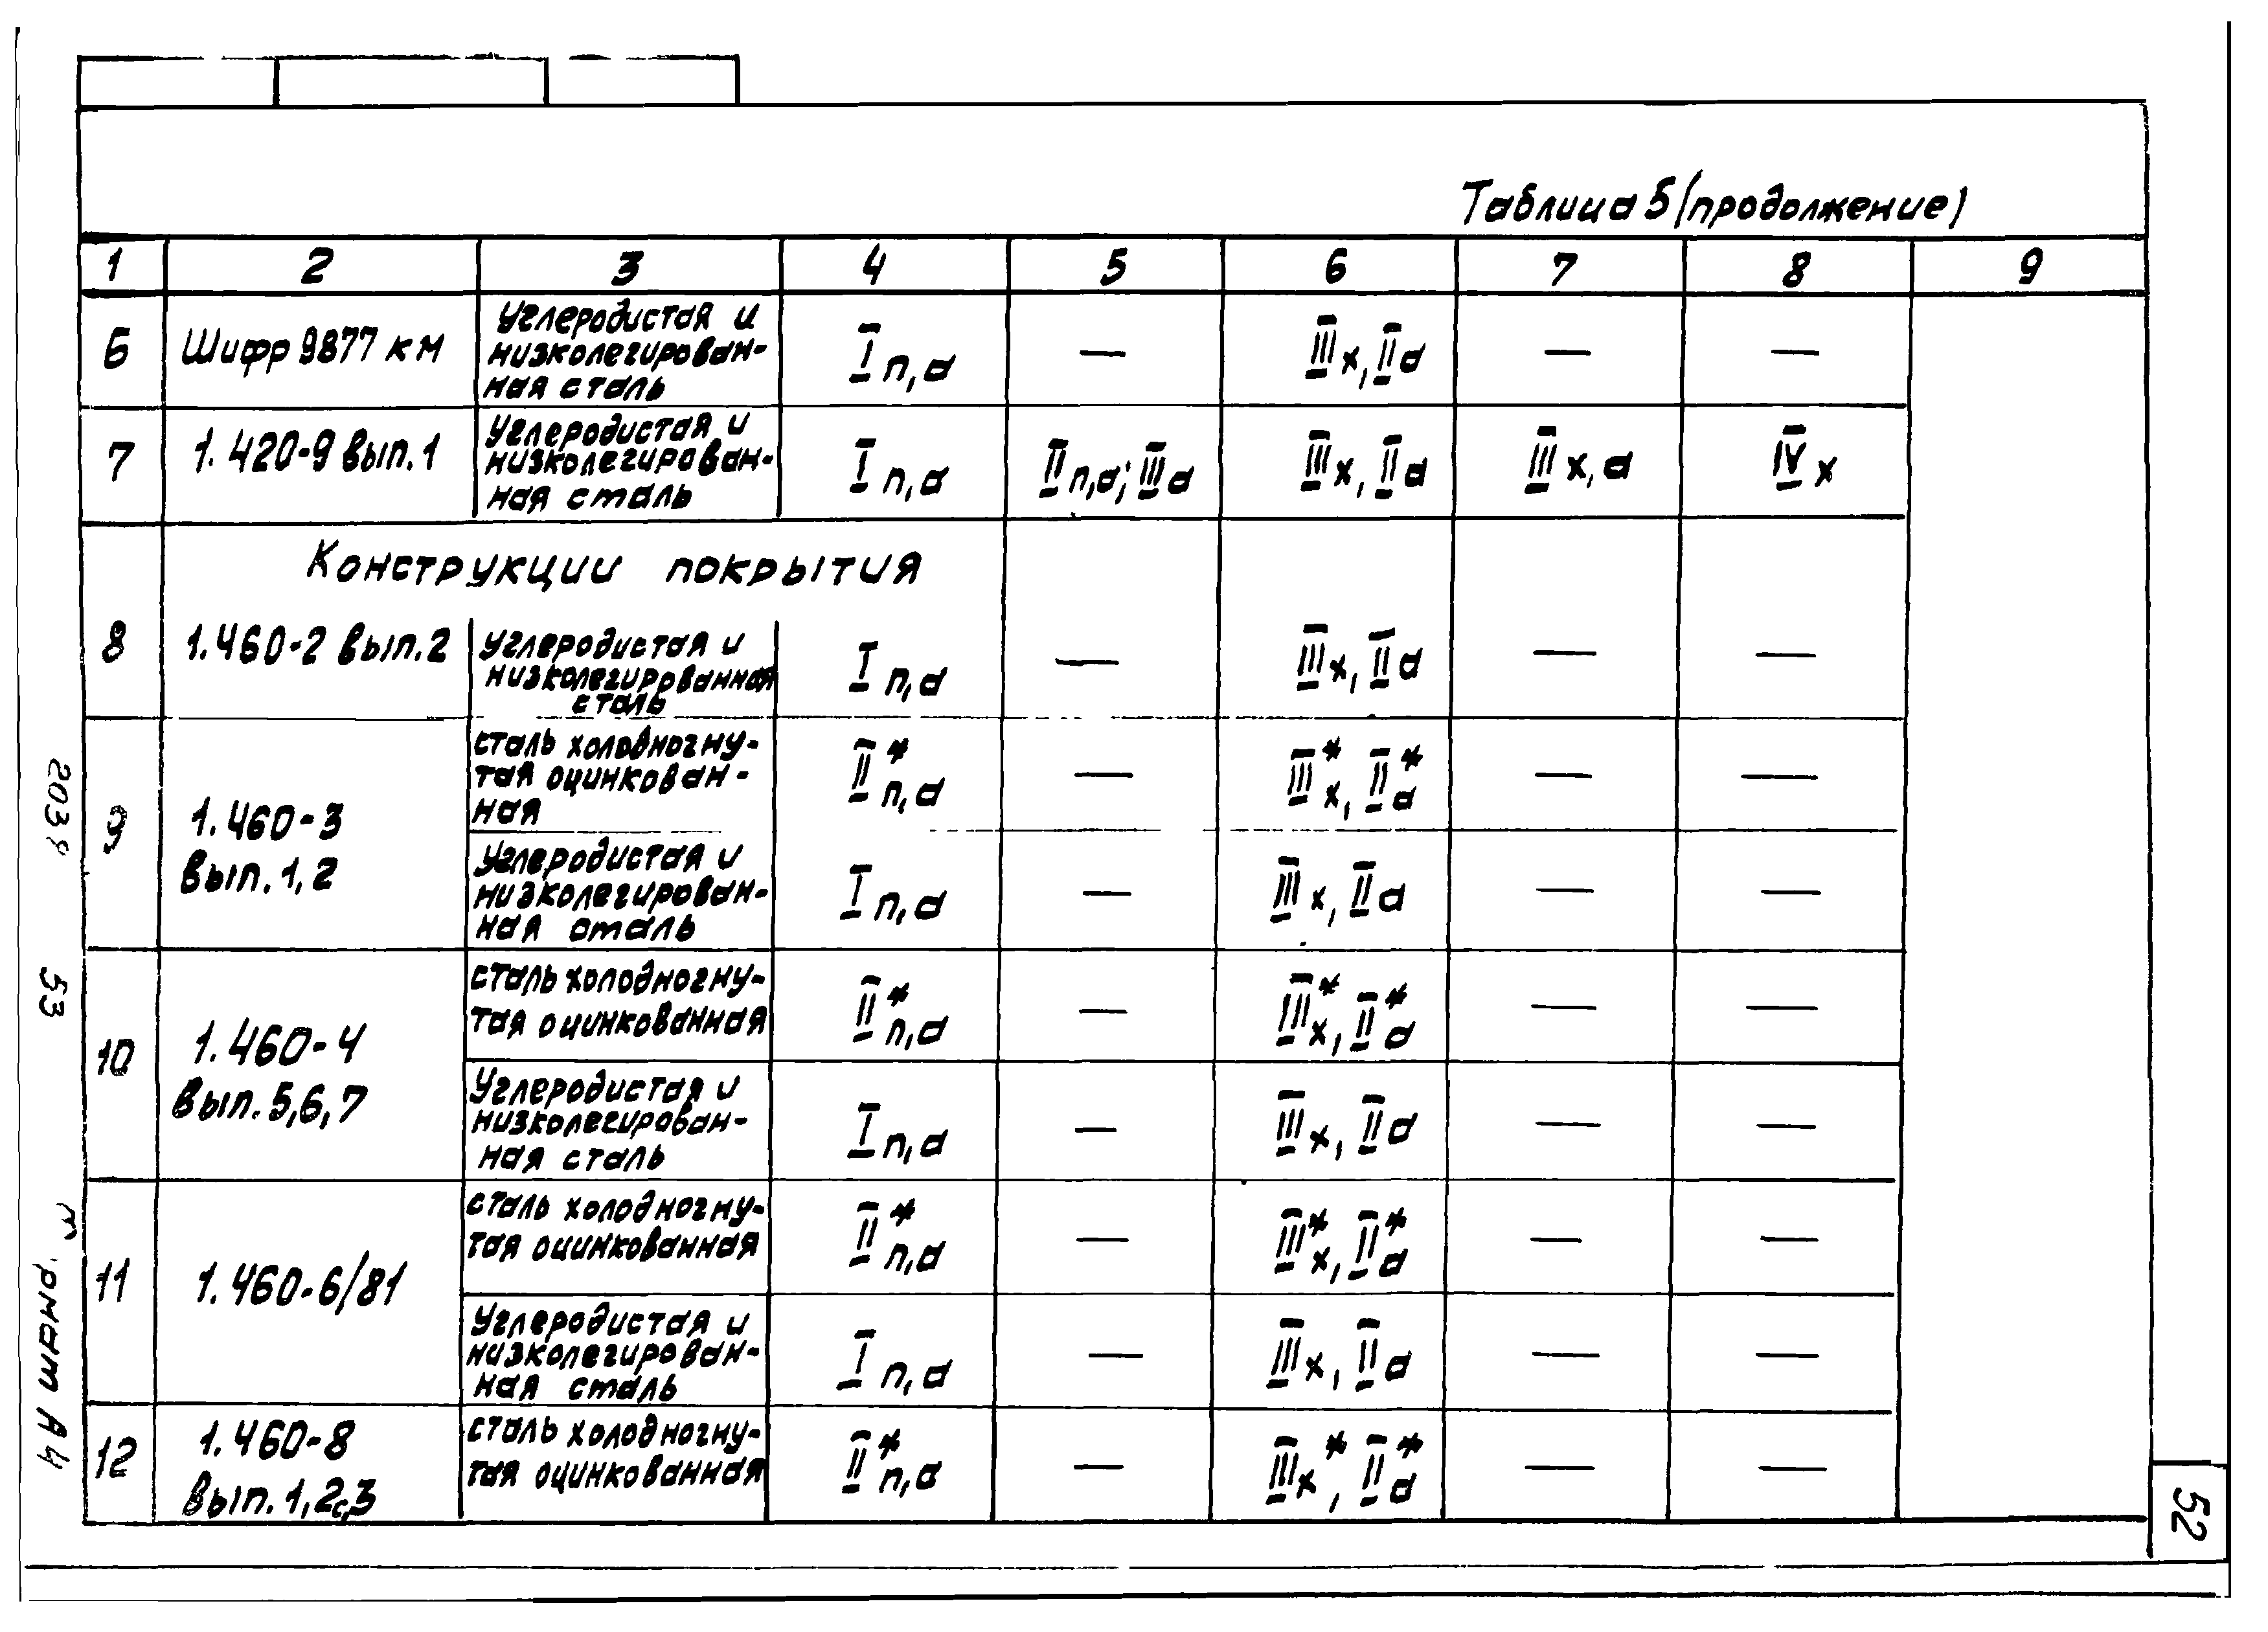 Таблица 5 (продолжение)
1 2 3 4 5 6 7 8 9
6 Шифр 9877 км Углеродистая и низколегирован-
ная сталь I п,а — III х, II а — —
7 1.420-9 вып.1 Углеродистая и
низколегирован-
ная сталь I п,а II п,а; III а III х, II а III х,а IV х
Конструкции покрытия
8 1.460-2 вып.2 Углеродистая и
низколегированная
сталь I п,а — III х, II а — —
9 1.460-3
вып.1,2
сталь холодногну-
тая оцинкован-
ная II* п,а — III* х, II* а — —
Углеродистая и
низколегирован-
ная сталь I п,а — III х, II а — —
10 1.460-4
вып.5,6,7
сталь холодногну-
тая оцинкованная II* п,а — III* х, II* а — —
Углеродистая и
низколегирован-
ная сталь I п,а — III х, II а — —
11 1.460-6/81
сталь холодногну-
тая оцинкованная II* п,а — III* х, II* а — —
Углеродистая и
низколегирован-
ная сталь I п,а — III х, II а — —
12 1.460-8
вып.1,2,3
сталь холодногну-
тая оцинкованная II* п,а — III* х, II* а — —
53
А4
52